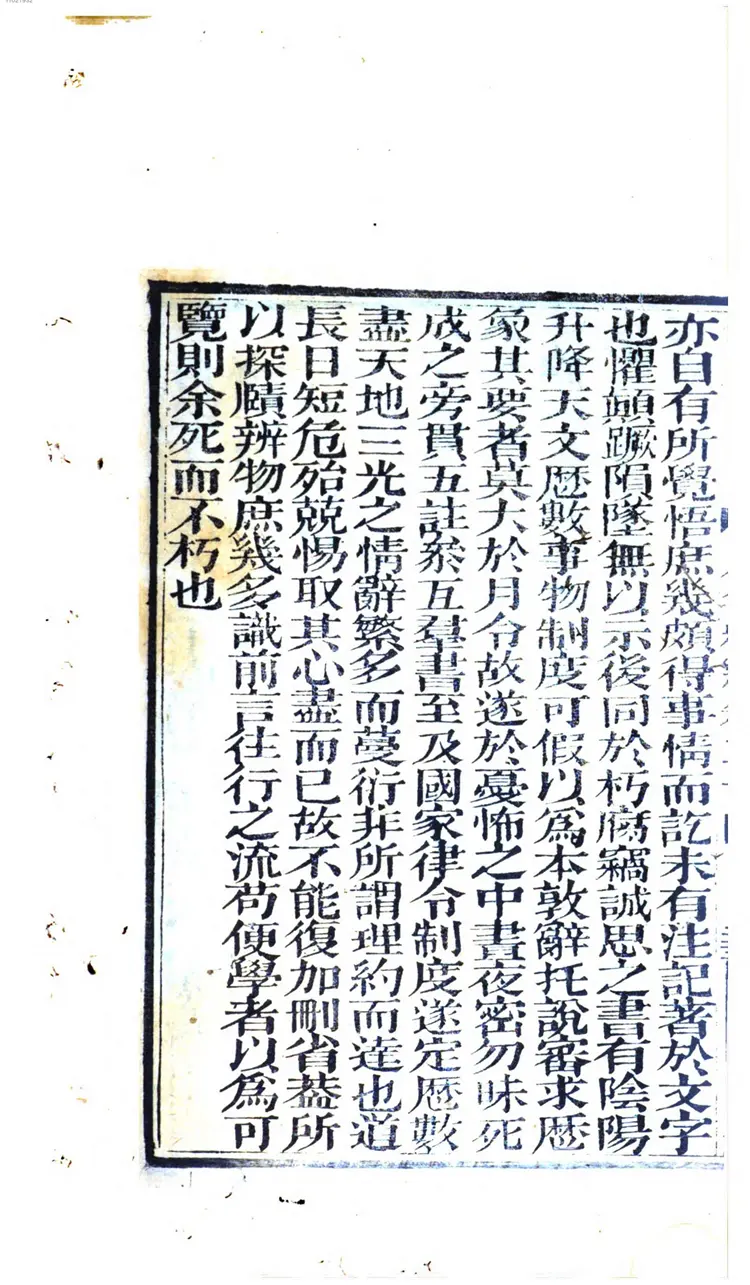 亦自有所覺悟庶幾頗得事情而訖未有注記著於文字
也懼顛蹶隕墜無以示後同於朽腐竊誠思之書有陰陽
升降天文歴數事物制度可假以爲本敦辭托說審求歴
象其要者莫大於月令故遂於憂怖之中晝夜密勿昧死
成之旁貫五註叅互羣書至及國家律令制度遂定歴數
盡天地三光之情辭繁多而蔓衍非所謂理約而達也道
長日短危殆兢惕取其心盡而已故不能復加刪省葢所
以探賾辨物庶幾多識前言往行之流苟便學者以爲可
覽則余死而不朽也